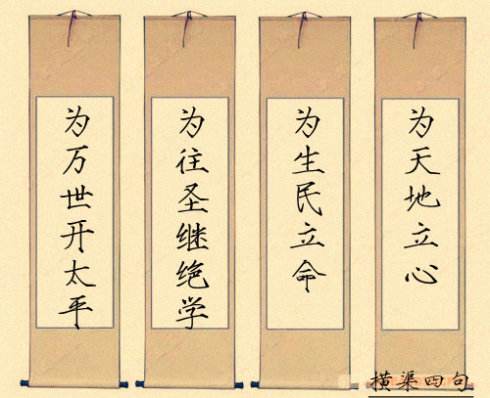 为天地立心
为生民立命
为往圣继绝学
为万世开太平
横渠四句